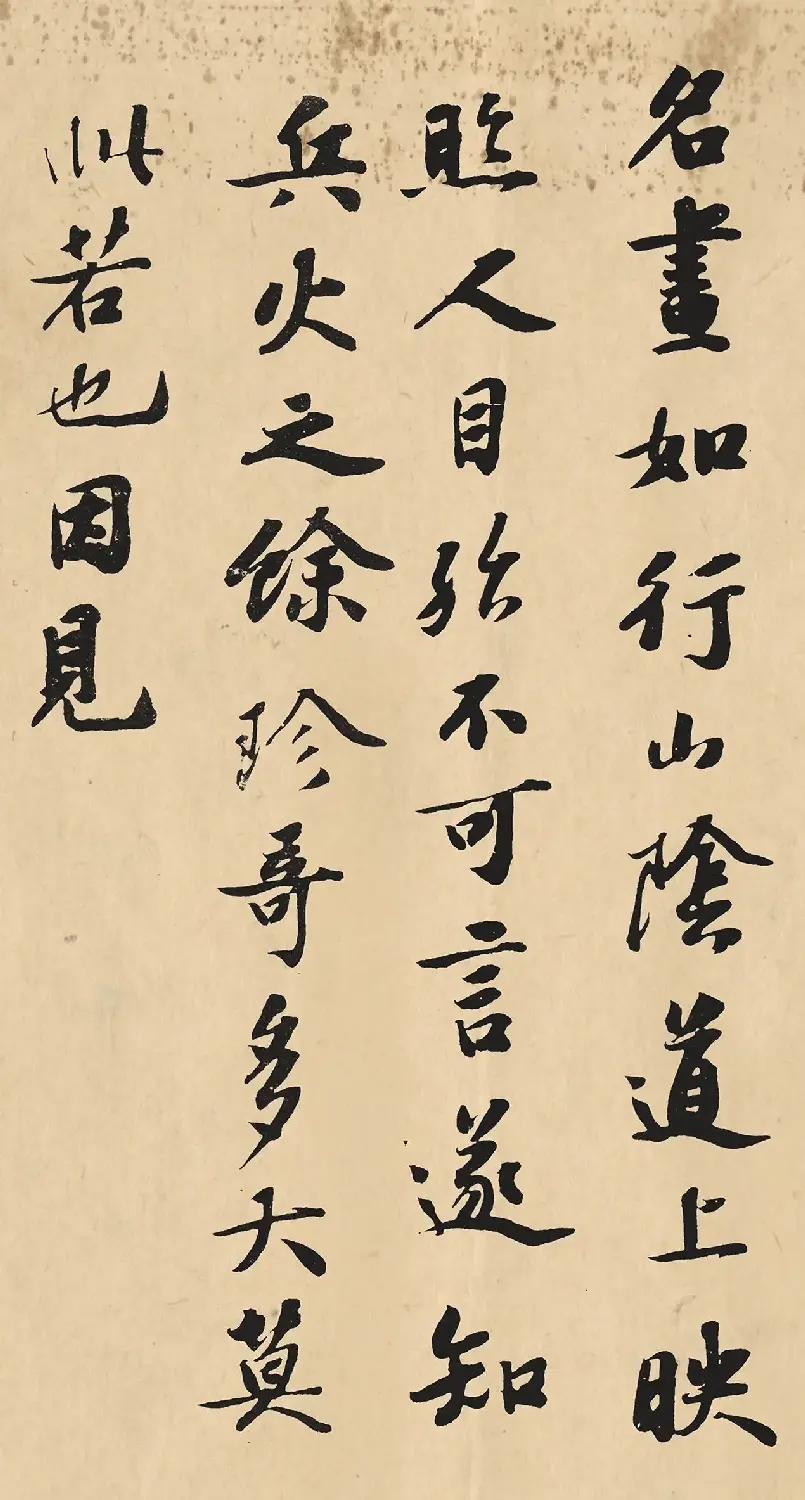 名畫如行山陰道上映
照人目殆不可言遂知
兵火之餘珍哥多大莫
此若也因見